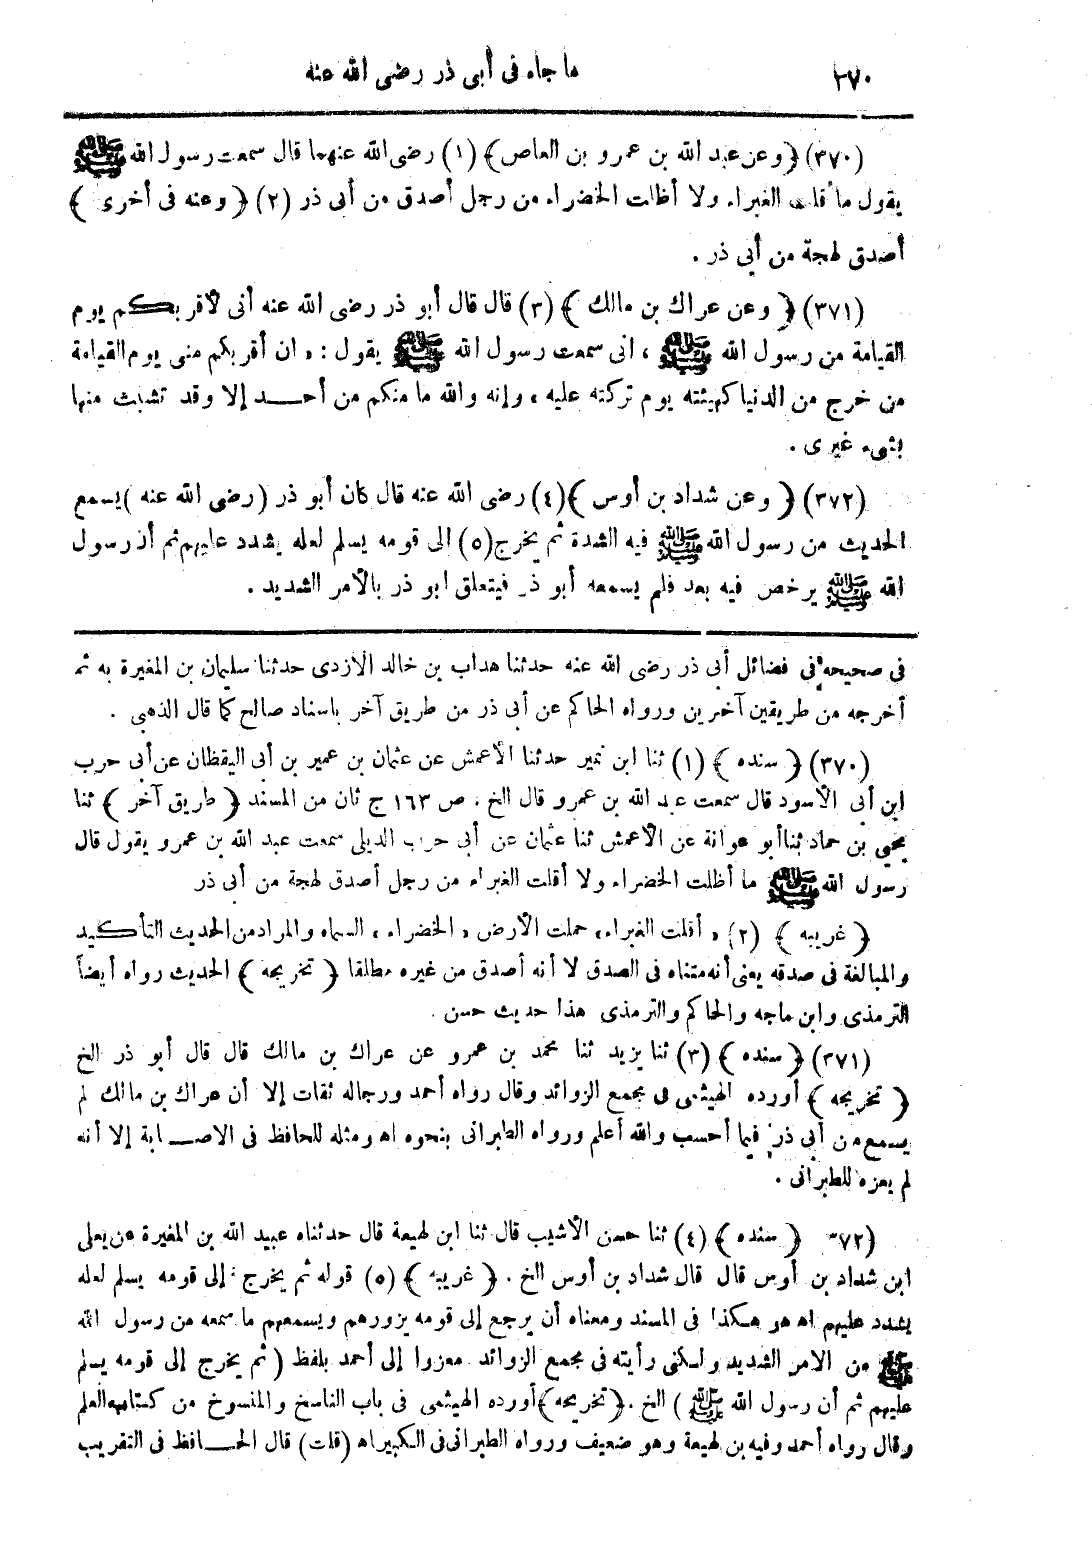 ٣٧٠ ما جاء فى أبى ذر رضى الله عنه
(٣٧٠) ﴿وعن عبد الله بن عمرو بن العاص﴾ (١) رضى الله عنهما قال سمعت رسول الله ﷺ
يقول ما أقلت الغبراء ولا أظلت الخضراء من رجل أصدق من أبى ذر (٢) ﴿وعنه فى أخرى﴾
أصدق لهجة من أبى ذر .
(٣٧١) ﴿وعن عراك بن مالك﴾ (٣) قال قال أبو ذر رضى الله عنه أنى لأقربكم يوم
القيامة من رسول الله ﷺ ، انى سمعت رسول الله ﷺ يقول : « ان أقربكم منى يوم القيامة
من خرج من الدنيا كهيئته يوم تركته عليه ، وإنه والله ما منكم من أحد إلا وقد تشبث منها
بشىء غيرى .
(٣٧٢) ﴿وعن شداد بن أوس﴾ (٤) رضى الله عنه قال كان أبو ذر (رضى الله عنه) يسمع
الحديث من رسول الله ﷺ فيه الشدة ثم يخرج (٥) الى قومه يسلم لعله يشدد عليهم ثم أن رسول
الله ﷺ يرخص فيه بعد فلم يسمعه أبو ذر فيتعلق ابو ذر بالأمر الشديد .
فى صحيحه فى فضائل أبى ذر رضى الله عنه حدثنا هداب بن خالد الازدى حدثنا سليمان بن المغيرة به ثم
أخرجه من طريقين آخرين ورواه الحاكم عن أبى ذر من طريق آخر باسناد صالح كما قال الذهبى .
(٣٧٠) ﴿سنده﴾ (١) ثنا ابن نمير حدثنا الأعمش عن عثمان بن عمير بن أبى اليقظان عن أبى حرب
ابن أبى الأسود قال سمعت عبد الله بن عمرو قال الخ . ص ١٦٣ ج ثان من المسند ﴿طريق آخر﴾ ثنا
يحيى بن حماد ثنا أبو عوانة عن الأعمش ثنا عثمان عن أبى حرب الديلى سمعت عبد الله بن عمرو يقول قال
رسول الله ﷺ ما أظلت الخضراء ولا أقلت الغبراء من رجل أصدق لهجة من أبى ذر
﴿غريبه﴾ (٢) « أقلت الغبراء» حملت الأرض « الخضراء » السماء والمراد من الحديث التأكيد
والمبالغة فى صدقه يعنى أنه متناه فى الصدق لا أنه أصدق من غيره مطلقا ﴿تخريجه﴾ الحديث رواه أيضاً
الترمذى وابن ماجه والحاكم والترمذى هذا حديث حسن .
(٣٧١) ﴿سنده﴾ (٣) ثنا يزيد ثنا محمد بن عمرو عن عراك بن مالك قال قال أبو ذر الخ
﴿تخريجه﴾ أورده الهيثمى فى مجمع الزوائد وقال رواه أحمد ورجاله ثقات إلا أن عراك بن مالك لم
يسمع من أبى ذر فيما أحسب والله أعلم ورواه الطبرانى بنحوه اه ومثله للحافظ فى الاصابة إلا أنه
لم يعزه للطبرانى .
(٣٧٢) ﴿سنده﴾ (٤) ثنا حسن الأشيب قال ثنا ابن لهيعة قال حدثناه عبيد الله بن المغيرة عن يعلى
ابن شداد بن أوس قال قال شداد بن أوس الخ . ﴿غريبه﴾ (٥) قوله ثم يخرج إلى قومه يسلم لعله
يشدد عليهم اه هو هكذا فى المسند ومعناه أن يرجع إلى قومه يزورهم ويسمعهم ما سمعه من رسول الله
ﷺ من الامر الشديد ولكنى رأيته فى مجمع الزوائد معزوا إلى أحمد بلفظ (ثم يخرج إلى قومه يسلم
عليهم ثم أن رسول الله ﷺ) الخ . ﴿تخريجه﴾ أورده الهيثمى فى باب الناسخ والمنسوخ من كتابه العلم
وقال رواه أحمد وفيه بن لهيعة وهو ضعيف ورواه الطبرانى فى الكبير اه (قلت) قال الحافظ فى التقريب